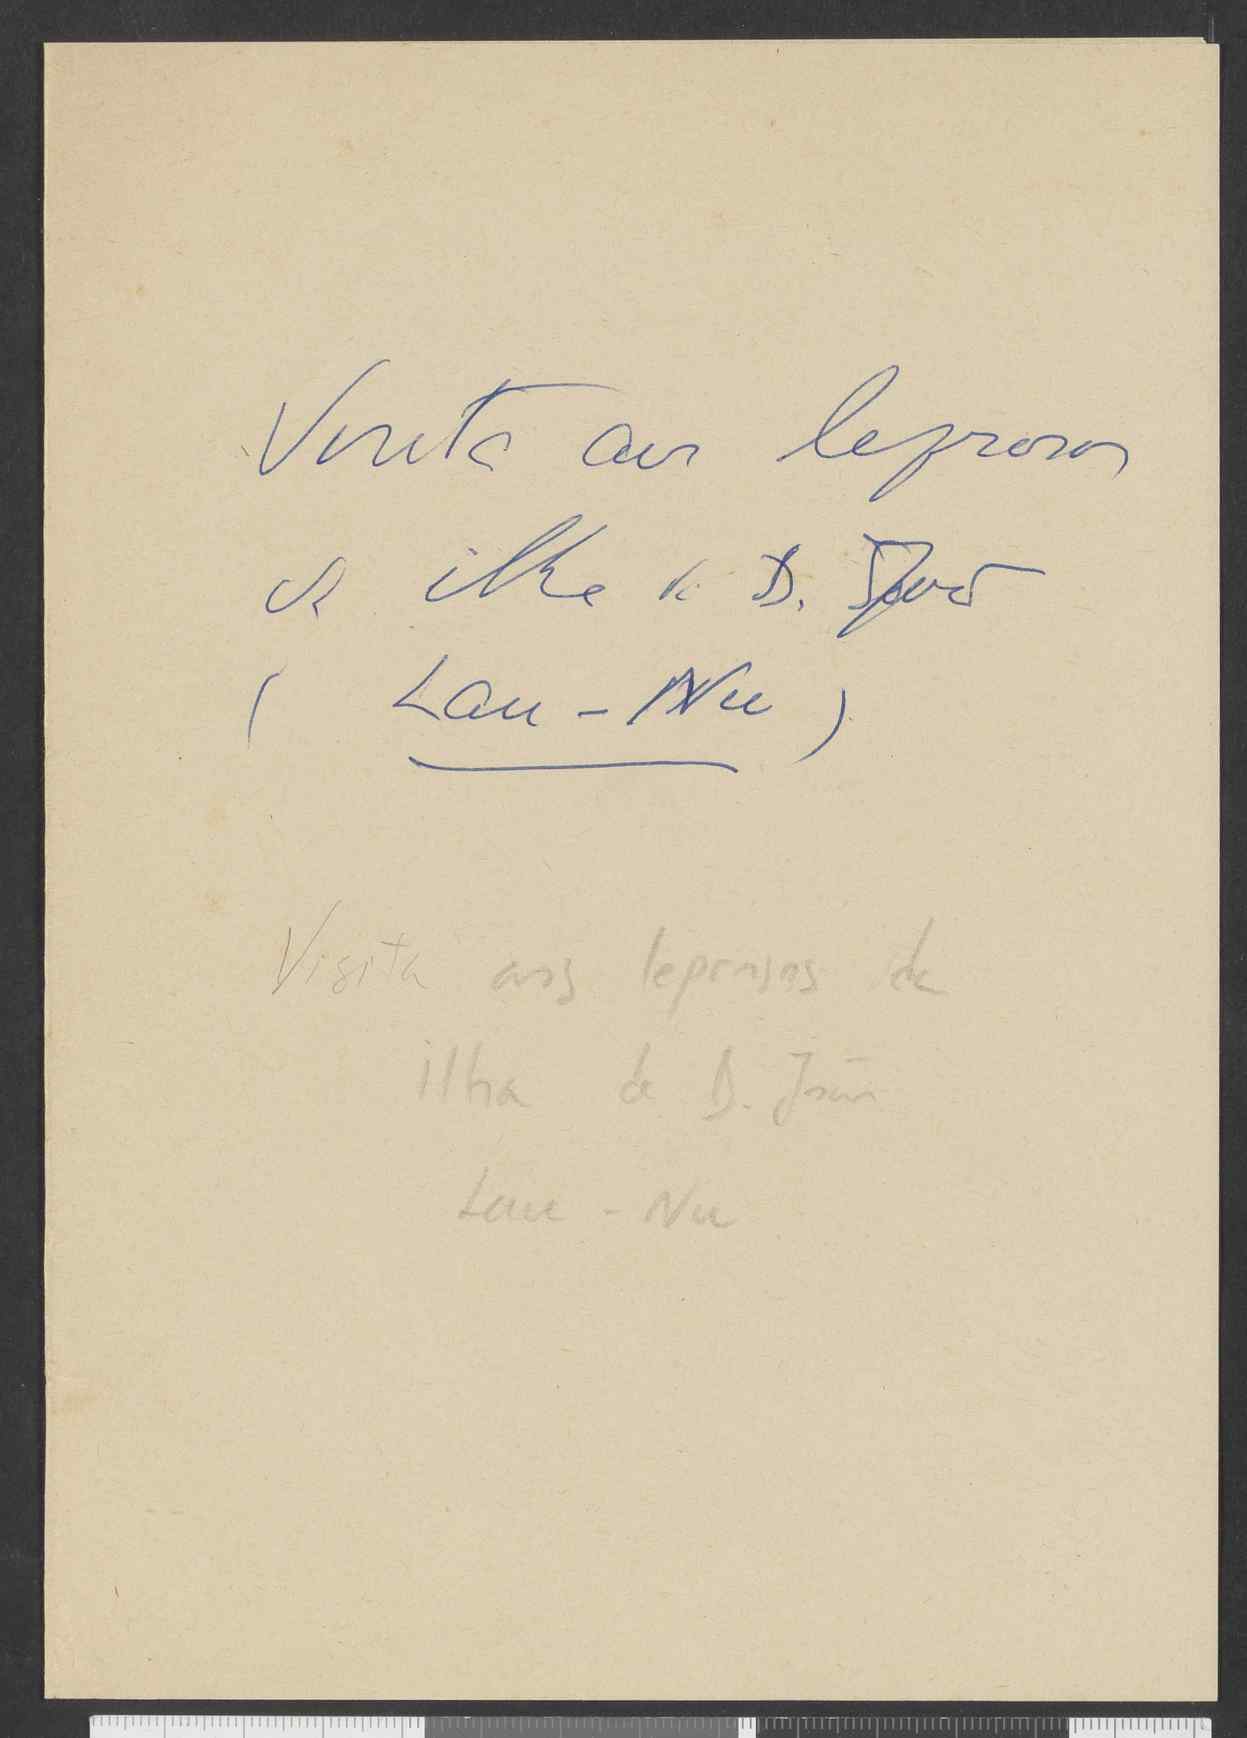 Visita aos leprosos
da ilha de D. João
( Lau - Nu )
Visita aos leprosos da
ilha de D. João
Lau - Nu